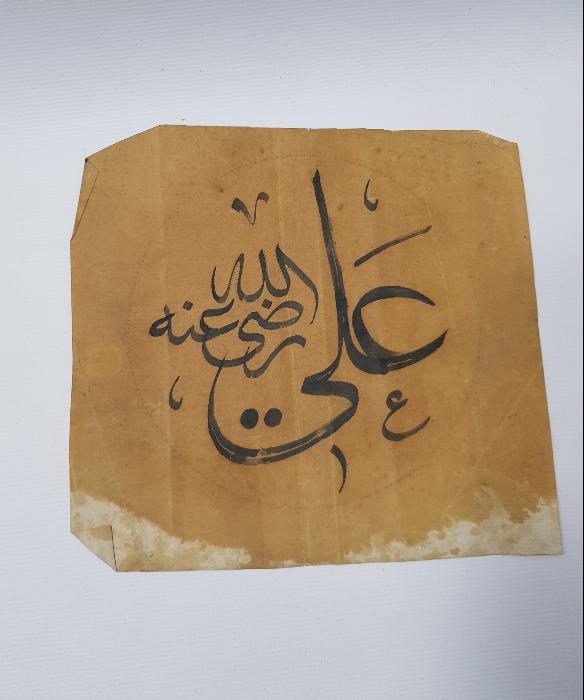 علي
رضى الله عنه